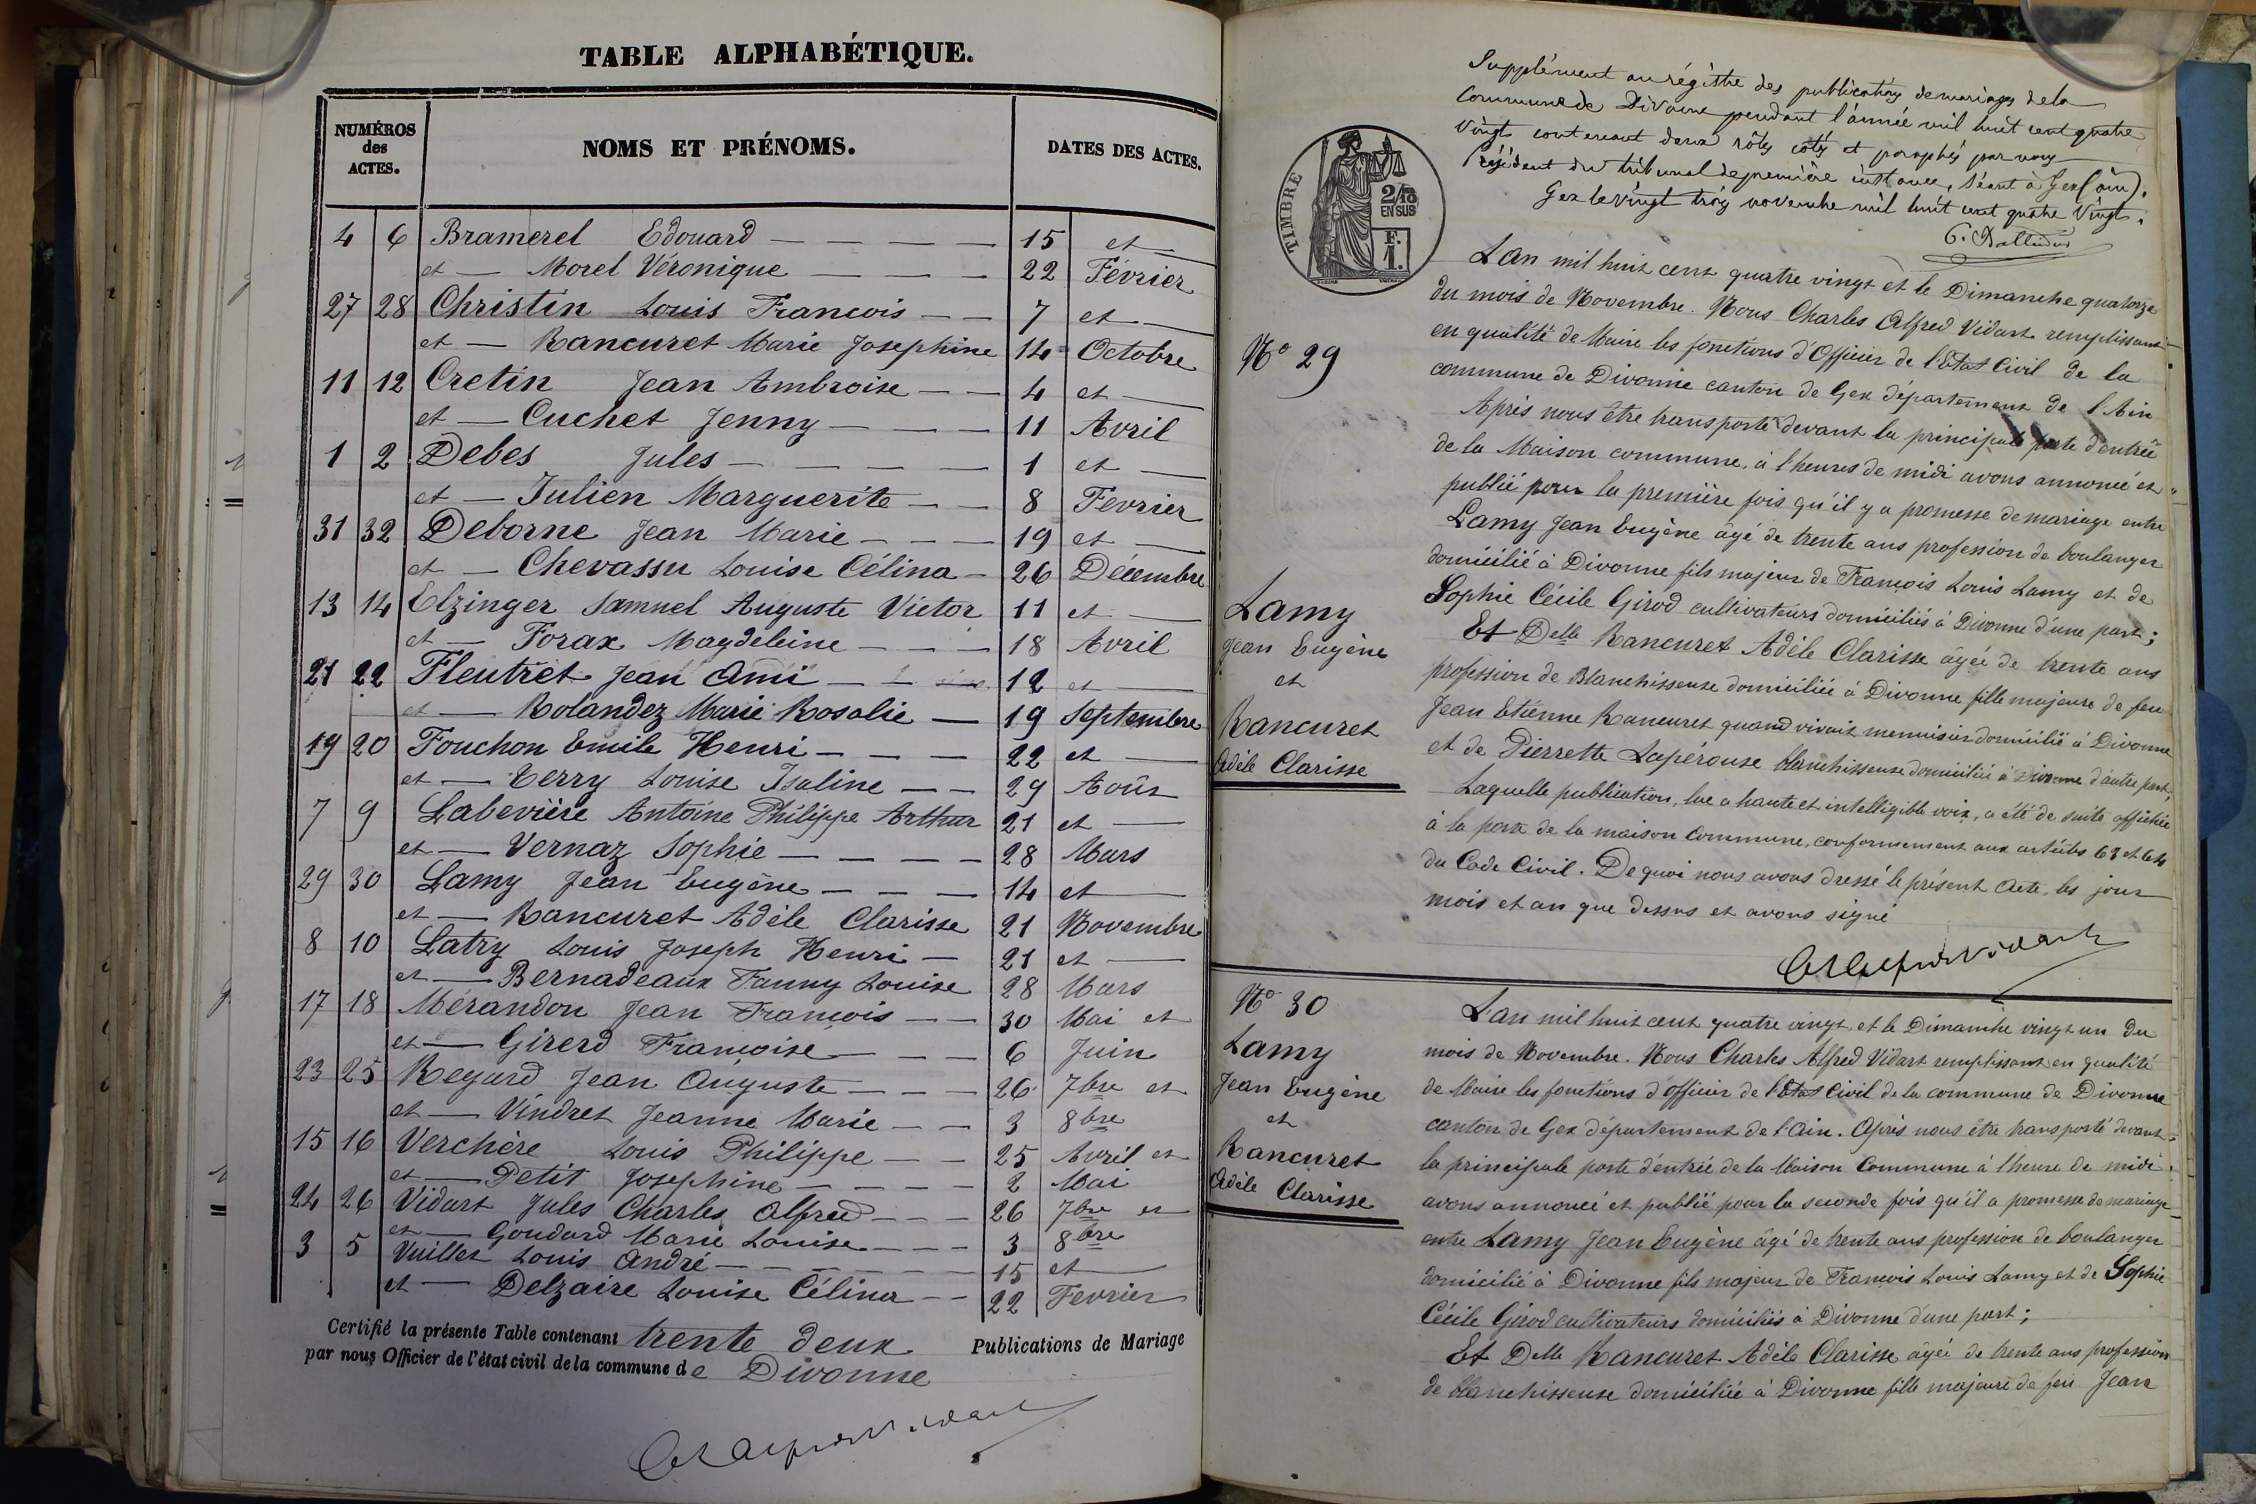 TABLE ALPHABÉTIQUE.
NUMÉROS des ACTES. NOMS ET PRÉNOMS. DATES DES ACTES.
4 6 Bramerel Edouard 15 et
et — Morel Véronique 22 Février
27 28 Christin Louis Francois 7 et
et — Rancuret Marie Josephine 14 Octobre
11 12 Cretin Jean Ambroise 4 et
et — Cuchet Jenny 11 Avril
1 2 Debes Jules 1 et
et — Julien Marguerite 8 Fevrier
31 32 Deborne Jean Marie 19 et
et — Chevassu Louise Célina 26 Décembre
13 14 Elzinger Samuel Auguste Victor 11 et
et — Forax Magdeleine 18 Avril
21 22 Fleutret Jean Ami 12 et
et — Rolandez Marie Rosalie 19 Septembre
19 20 Fouchon Emile Henri 22 et
et — Terry Louise Isaline 29 Août
7 9 Labevière Antoine Philippe Arthur 21 et
et — Vernaz Sophie 28 Mars
29 30 Lamy Jean Eugène 14 et
et — Rancuret Adèle Clarisse 21 Novembre
8 10 Latry Louis Joseph Henri 21 et
et — Bernadeaux Fanny Louise 28 Mars
17 18 Mérandon Jean François 30 Mai et
et — Girerd Françoise 6 Juin
23 25 Regard Jean Auguste 26 7bre et
et — Vindret Jeanne Marie 3 8bre
15 16 Verchère Louis Philippe 25 Avril et
et — Petit Josephine 2 Mai
24 26 Vidart Jules Charles Alfred 26 7bre et
et — Goudard Marie Louise 3 8bre
3 5 Vuillet Louis André 15 et
et — Delzaire Louise Célina 22 Fevrier
Certifié la présente Table contenant trente deux Publications de Mariage
par nous Officier de l'état civil de la commune de Divonne
Supplément au régistre des publications de mariages de la
Commune de Divonne pendant l'année mil huit cent quatre
vingt contenant deux rôles cotés et paraphés par nous
Président du tribunal de première instance, séant à Gex (ain).
Gex le vingt trois novembre mil huit cent quatre vingt.
TIMBRE
2/10 EN SUS
F. 1.
L'an mil huit cent quatre vingt et le Dimanche quatorze
du mois de Novembre. Nous Charles Alfred Vidart remplissant
No 29
en qualité de Maire les fonctions d'Officier de l'Etat Civil de la
commune de Divonne canton de Gex département de l'Ain
Après nous être transporté devant la principale porte d'entrée
de la Maison commune, à l'heures de midi avons annoncé et
publié pour la première fois qu'il y a promesse de mariage entre
Lamy Jean Eugène âgé de trente ans profession de boulanger
domicilié à Divonne fils majeur de François Louis Lamy et de
Sophie Cécile Girod cultivateurs domiciliés à Divonne d'une part;
Lamy
Jean Eugène
et
Rancuret
Adèle Clarisse
Et Delle Rancuret Adèle Clarisse âgée de trente ans
profession de Blanchisseuse domiciliée à Divonne fille majeure de feu
Jean Etienne Rancuret quand vivait menuisier domicilié à Divonne
et de Pierrette Lapérouse blanchisseuse domiciliée à Divonne d'autre part,
Laquelle publication, lue a haute et intelligible voix, a été de suite affichée
à la porte de la maison commune, conformement aux articles 63 et 64
du Code Civil. De quoi nous avons dressé le présent acte, les jour
mois et an que dessus et avons signé
No 30
Lamy
Jean Eugène
et
Rancuret
Adèle Clarisse
L'an mil huit cent quatre vingt et le Dimanche vingt un du
mois de Novembre. Nous Charles Alfred Vidart remplissant en qualité
de Maire les fonctions d'officier de l'Etat Civil de la commune de Divonne
canton de Gex département de l'Ain. Après nous être transporté devant
la principale porte d'entrée de la Maison Commune à l'heure de midi
avons annoncé et publié pour la seconde fois qu'il a promesse de mariage
entre Lamy Jean Eugène âgé de trente ans profession de boulanger
domicilié à Divonne fils majeur de François Louis Lamy et de Sophie
Cécile Girod cultivateurs domiciliés à Divonne d'une part;
Et Delle Rancuret Adèle Clarisse âgée de trente ans profession
de blanchisseuse domiciliée à Divonne fille majeure de feu Jean